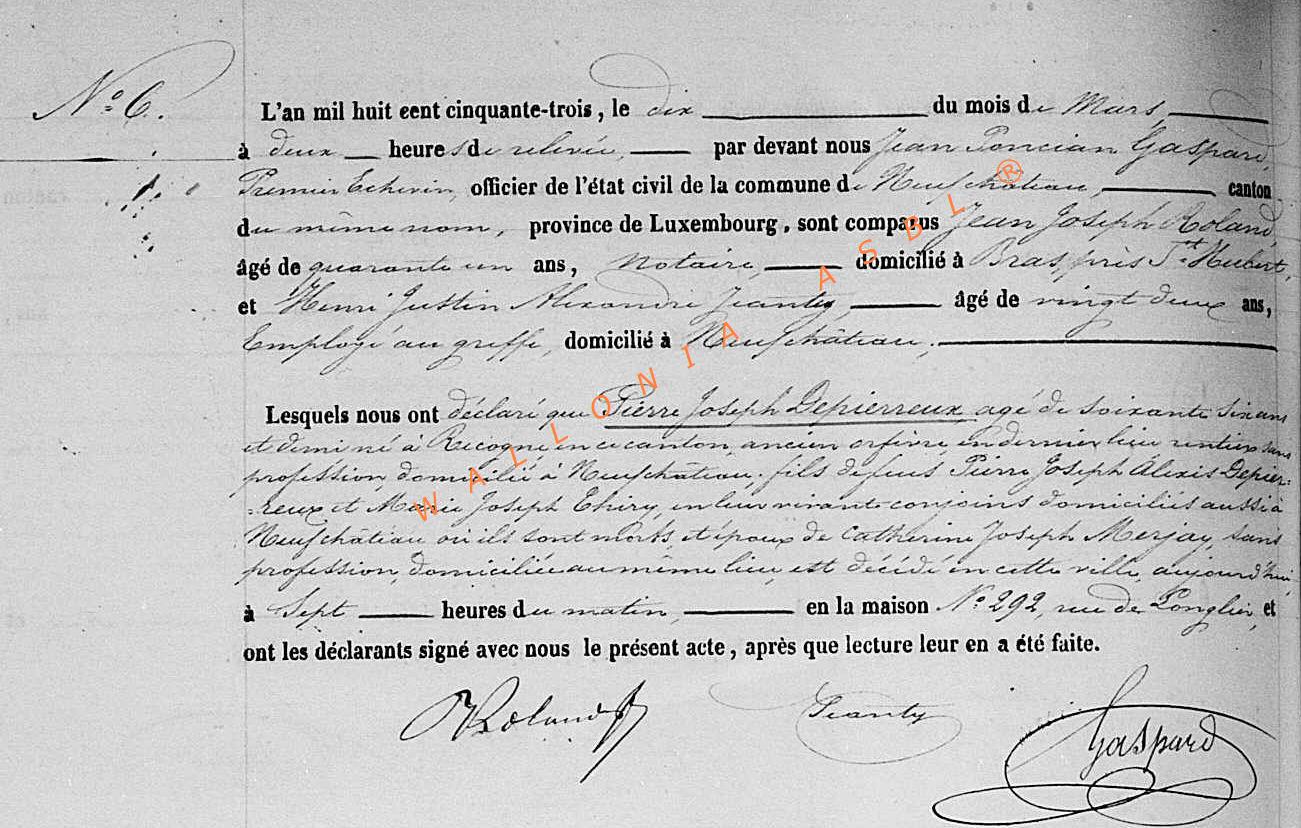 N.º 6.
L'an mil huit cent cinquante-trois, le dix du mois de Mars,
à deux heures de relevée, par devant nous Jean Poncian Gaspard,
Premier Echevin, officier de l'état civil de la commune de Neufchâteau, canton
du même nom, province de Luxembourg, sont comparus Jean Joseph Roland,
âgé de quarante un ans, Notaire, domicilié à Bras, près St Hubert,
et Henri Justin Alexandre Jeanty, âgé de vingt deux ans,
Employé au greffe, domicilié à Neufchâteau,
Lesquels nous ont déclaré que Pierre Joseph Depierreux agé de soixante six ans
et demi né à Recogne en ce canton, ancien orfèvre, en dernier lieu rentier sans
profession, domicilié à Neufchâteau, fils de feus Pierre Joseph Alexis Depier-
-reux et Marie Joseph Thiry, en leur vivant conjoins domiciliés aussi à
Neufchâteau où ils sont morts et époux de Catherine Joseph Merjay, sans
profession, domiciliée au même lieu, est décédé en cette ville, aujourd'hui
à Sept heures du matin, en la maison N.º 292, rue de Longlier, et
ont les déclarants signé avec nous le présent acte, après que lecture leur en a été faite.
Roland Jeanty Gaspard
WALLONIA ASBL ®